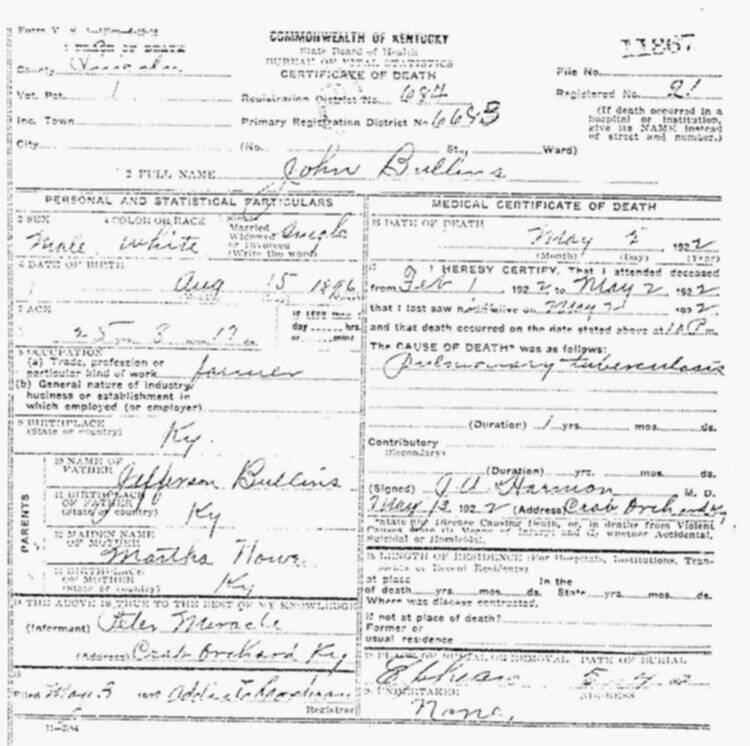 COMMONWEALTH OF KENTUCKY
State Board of Health
BUREAU OF VITAL STATISTICS
CERTIFICATE OF DEATH
11867
1 PLACE OF DEATH
County Lincoln
Vot. Pct. 1
Inc. Town
City
Registration District No. 684
Primary Registration District No 6683
(No. St., Ward)
File No.
Registered No. 21
(If death occurred in a hospital or institution, give its NAME instead of street and number.)
2 FULL NAME John Bullins
PERSONAL AND STATISTICAL PARTICULARS
3 SEX Male
4 COLOR OR RACE White
Single Married Widowed or Divorced (Write the word) Single
6 DATE OF BIRTH
Aug 15 1896
7 AGE
25 yrs. 8 mos. 17 ds.
If LESS than day hrs. or min.
8 OCCUPATION
(a) Trade, profession or particular kind of work farmer
(b) General nature of industry, business or establishment in which employed (or employer)
9 BIRTHPLACE
(State or country) Ky.
PARENTS
10 NAME OF FATHER Jefferson Bullins
11 BIRTHPLACE OF FATHER
(State or country) Ky
12 MAIDEN NAME OF MOTHER Martha
13 BIRTHPLACE OF MOTHER
(State or country) Ky
14 THE ABOVE IS TRUE TO THE BEST OF MY KNOWLEDGE
(Informant) Peter Miracle
(Address) Crab Orchard Ky
15
Filed
Registrar
MEDICAL CERTIFICATE OF DEATH
16 DATE OF DEATH
May 2, 1922
(Month) (Day) (Year)
17 I HEREBY CERTIFY, That I attended deceased
from Feb 1 1922 to May 2 1922
that I last saw alive on May 2 1922
and that death occurred on the date stated above at m.
The CAUSE OF DEATH* was as follows:
Pulmonary tuberculosis
(Duration) 1 yrs. mos. ds.
Contributory
(Secondary)
(Duration) yrs. mos. ds.
(Signed) Harmon M. D.
May 12 1922 (Address) Crab Orchard Ky
*State the Disease Causing Death, or, in deaths from Violent Causes state (1) Means of Injury; and (2) whether Accidental, Suicidal or Homicidal.
18 LENGTH OF RESIDENCE (For Hospitals, Institutions, Transients or Recent Residents)
at place of death yrs. mos. ds. In the State yrs. mos. ds.
Where was disease contracted,
if not at place of death?
Former or usual residence
19 PLACE OF BURIAL OR REMOVAL DATE OF BURIAL
20 UNDERTAKER ADDRESS
None